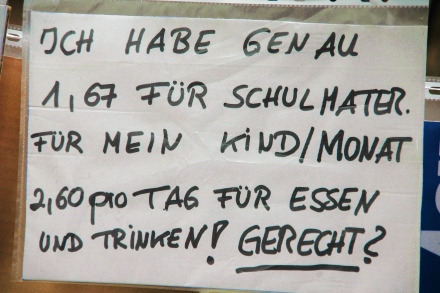 ICH HABE GENAU
1,67 FÜR SCHULMATER.
FÜR MEIN KIND/MONAT
2,60 pro TAG FÜR ESSEN
UND TRINKEN! GERECHT?